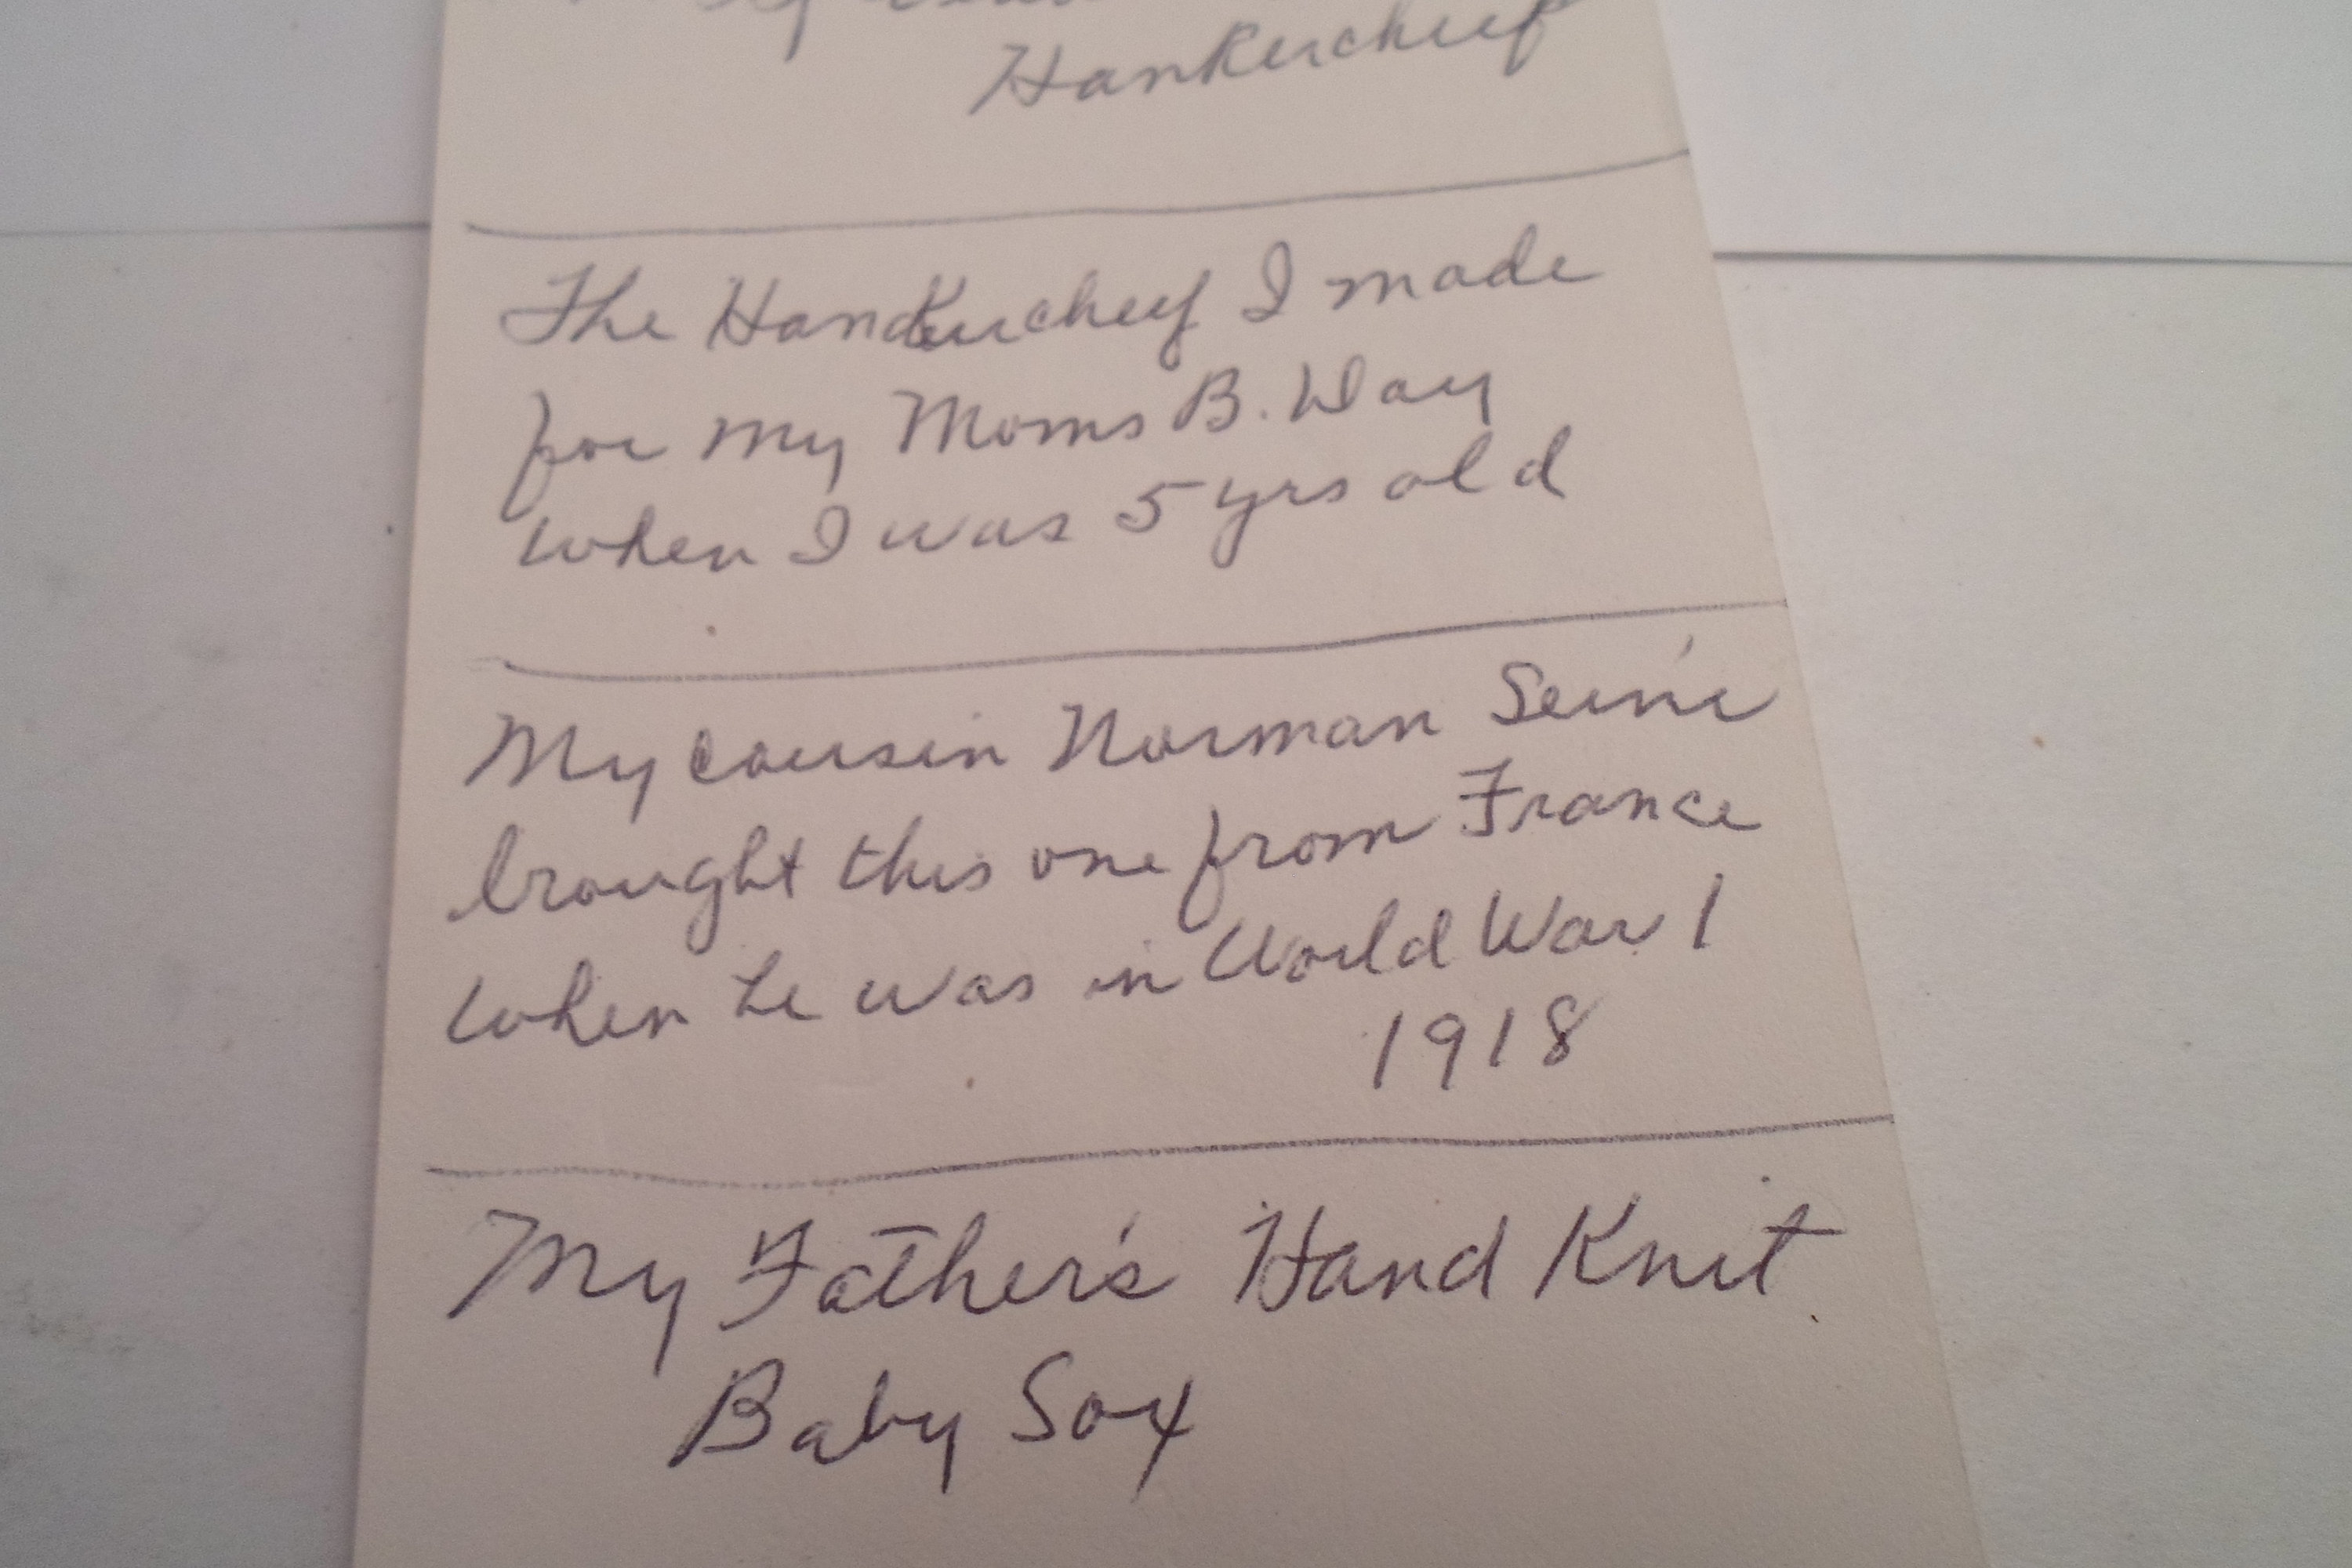 Hankercheef
The Handkercheef I made
for my Moms B. Day
when I was 5 yrs old
My cousin Norman
brought this one from France
when he was in World War 1
1918
My Father's Hand Knit
Baby Sox